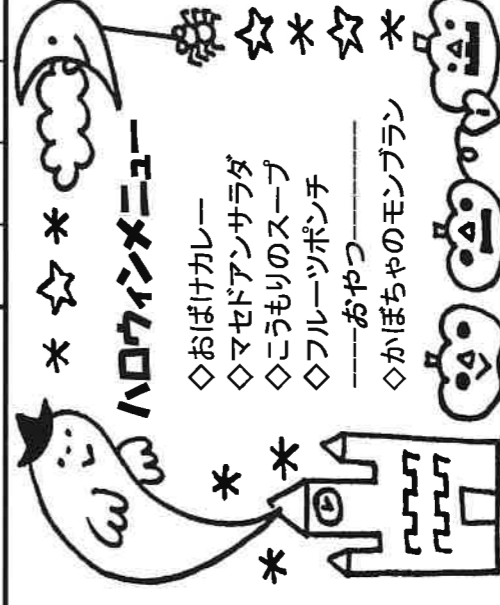 ハロウィンメニュー
◇おばけカレー
◇マセドアンサラダ
◇こうもりのスープ
◇フルーツポンチ
----おやつ----------
◇かぼちゃのモンブラン